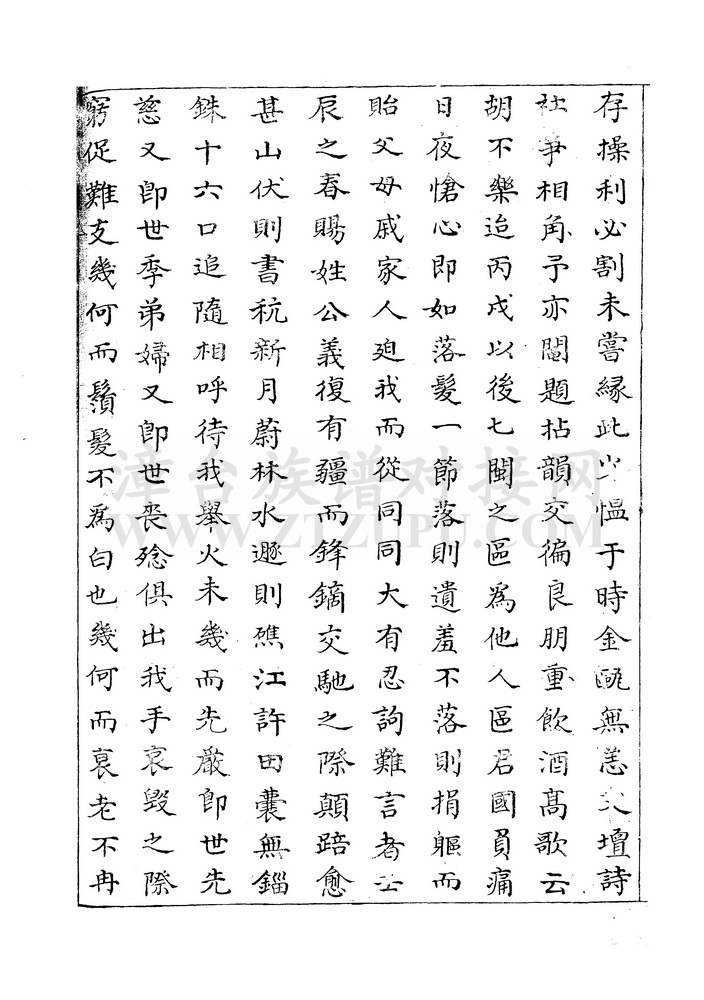 存操利必割未嘗緣此少慍于時金甌無恙文壇詩
社爭相角予亦鬮題拈韻交徧良朋重飲酒高歌云
胡不樂迨丙戌以後七閩之區為他人區君國員痛
日夜愴心即如落髮一節落則遺羞不落則捐軀而
貽父母戚家人廹我而從同同大有忍訽難言者壬
辰之春賜姓公義復有疆而鋒鏑交馳之際顛踣愈
甚山伏則書秔新月蔚林水遯則礁江許田囊無錙
銖十六口追隨相呼待我舉火未幾而先嚴即世先
慈又即世季弟婦又即世喪殮俱出我手哀毀之際
窮促難支幾何而鬚髮不為白也幾何而衰老不冉
漳台族谱对接网
WWW.ZTZUPU.COM